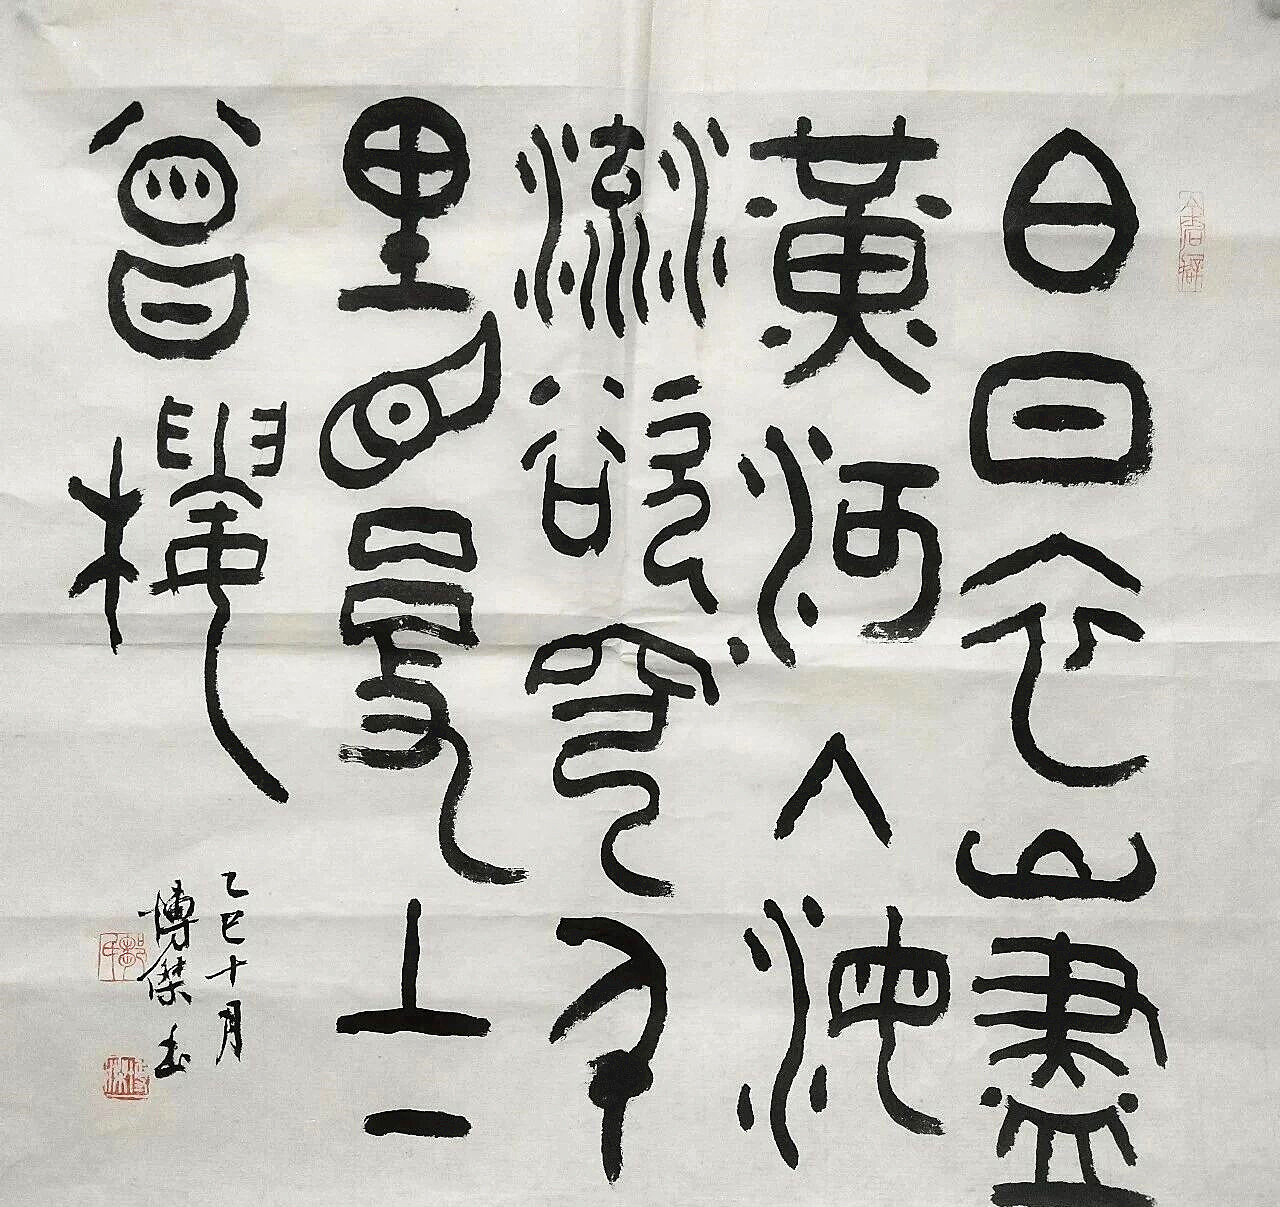 白日衣山盡
黃河入海
流欲窮千
里目更上一
曾樓
乙巳十月
博傑書